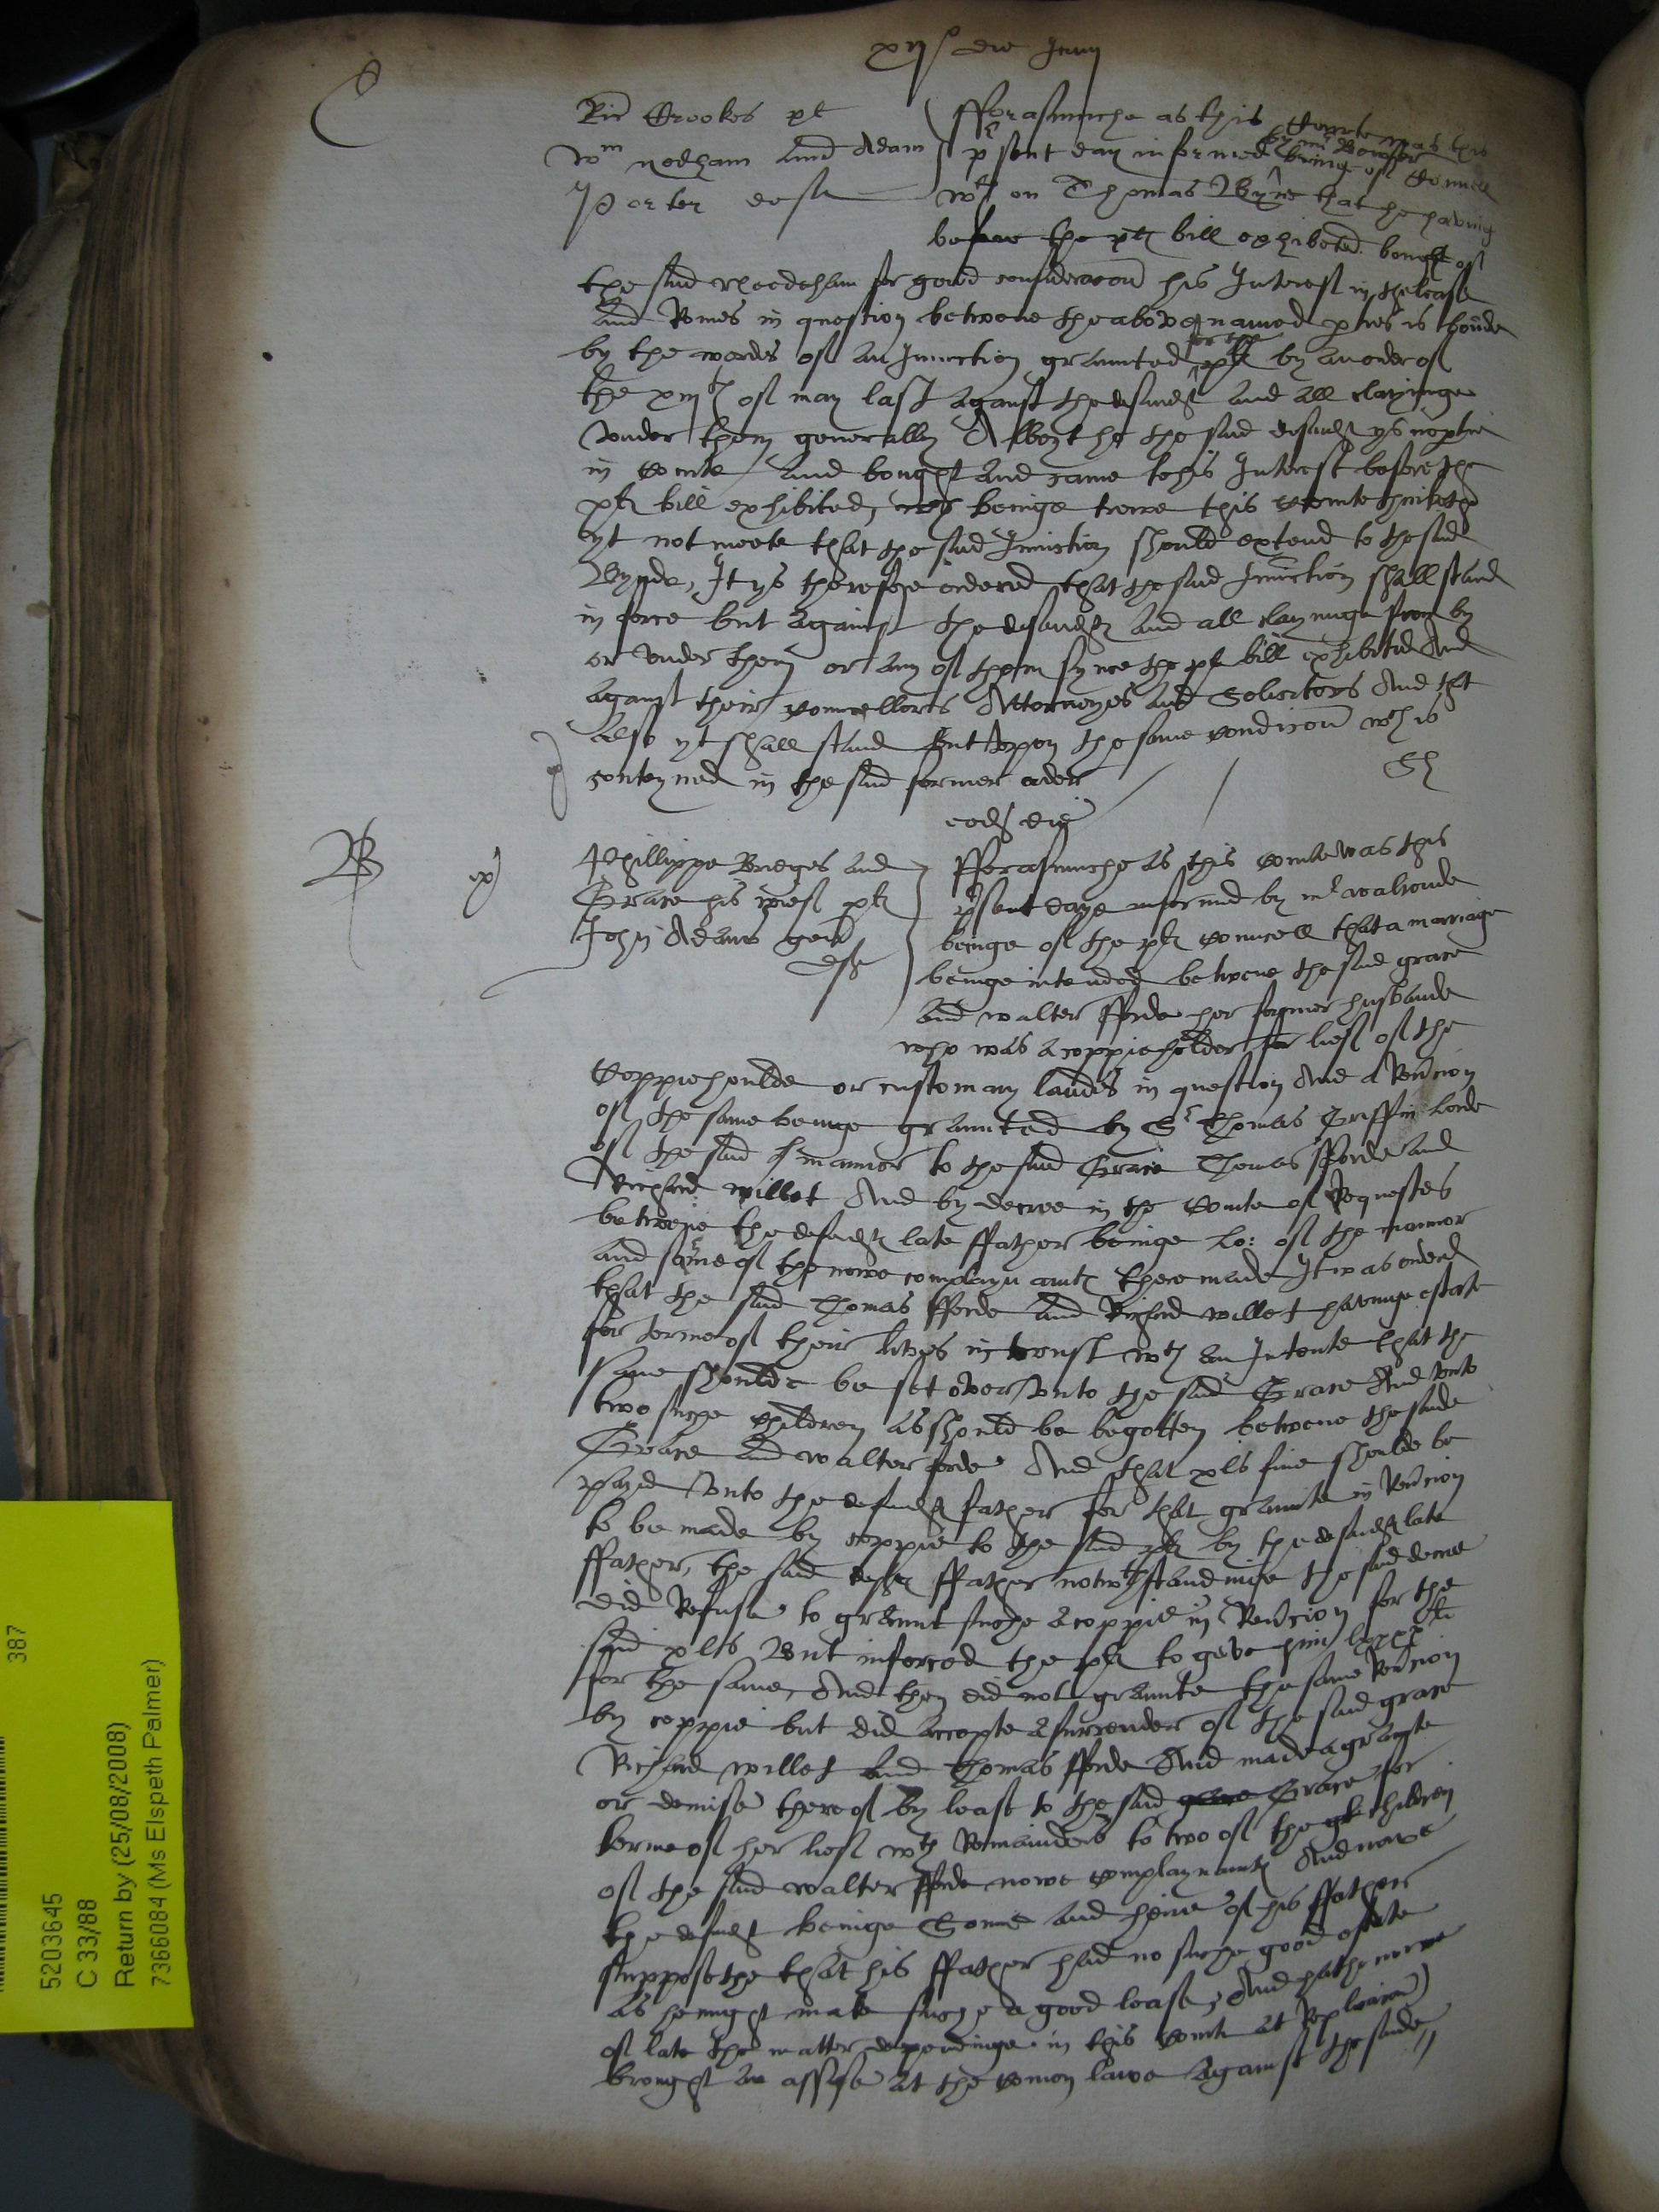 xij° die Junij
C
Ric Crookes pt
Wm nedham and Adam
Porter deft
fforasmuche as this Courte was this
by mr Bowser
psent day informed being of Counsell
wth on Thomas Bynde that he having
before the plt bill exhibited bought of
the said for good consideracon his Interest in the lease
and in question betwene the above named pties is bound
by the wordes of an Iniunction graunted for the plt by an order of
the xiijth of may last against the defendt and all clayminge
vnder them generally Albeyt he the said defendt ys no ptie
in Courte And bought and came to his Interest before the
plt bill exhibited, wch beinge trewe this Courte thinketh
yt not meete that the said Iniunction should extend to the said
Bynde, It ys therefore ordered that the said Iniunction shall stand
in force but against the defendt and all clayminge from by
or vnder them or any of them synce the plt bill exhibited And
against their counsellors Attorneyes and Solicitors And that
also yt shall stand but vpon the same condicon wch is
conteyned in the said former order
eodm die
Phillippe Bridges and
Grace his wief plt
John Adams gent
deft
fforasmuche as this Courte was this
psent daye informed by mr walronde
beinge of the plt Councell that a marriage
beinge intended betwene the said grace
and walter fforde her former husbande
who was a coppieholder for lief of the
Coppiehoulde or customary landes in question And a Reucion
of the same beinge graunted by Sr Thomas Griffin lorde
of the said mannor to the said Grace Thomas fforde and
Richard willet And by decree in the Courte of Requestes
betwene the defendt late ffather beinge lo: of the mannor
and some of the nowe complaynantes there made It was ordered
that the said Thomas fforde and Richard willet havinge estate
for terme of their lives in trust wth an Intente that the
same shoulde be set over vnto the said Grace And vnto
two suche Children as should be begotten betwene the saide
Grace and walter forde And that xls fine shoulde be
payd vnto the defendt father for that graunte in Reucion
to be made by coppie to the said plt by the defendt late
ffather, the said deft ffather notwthstandinge the said decree
did Refuse to graunt suche a coppie in Reucion for the
said xls But inforced the plt to geve him
for the same, And then did not graunte the same Reucion
by coppie but did accepte a surrender of the said grace
Richard willet and Thomas fforde And made a graunte
or demise thereof by lease to the said Grace for
terme of her lief wth Remainders to two of the children
of the said walter fforde nowe complaynantes And nowe
the defendt beinge Sonne and heire of his ffather
supposethe that his ffather had no suche good estate
as he might make suche a good lease, And hathe nowe
of late the matter dependinge in this Courte at Replicacon
brought an assise at the comon lawe against the saide
5203645
387
C 33/88
Return by (25/08/2008)
7366084 (Ms Elspeth Palmer)